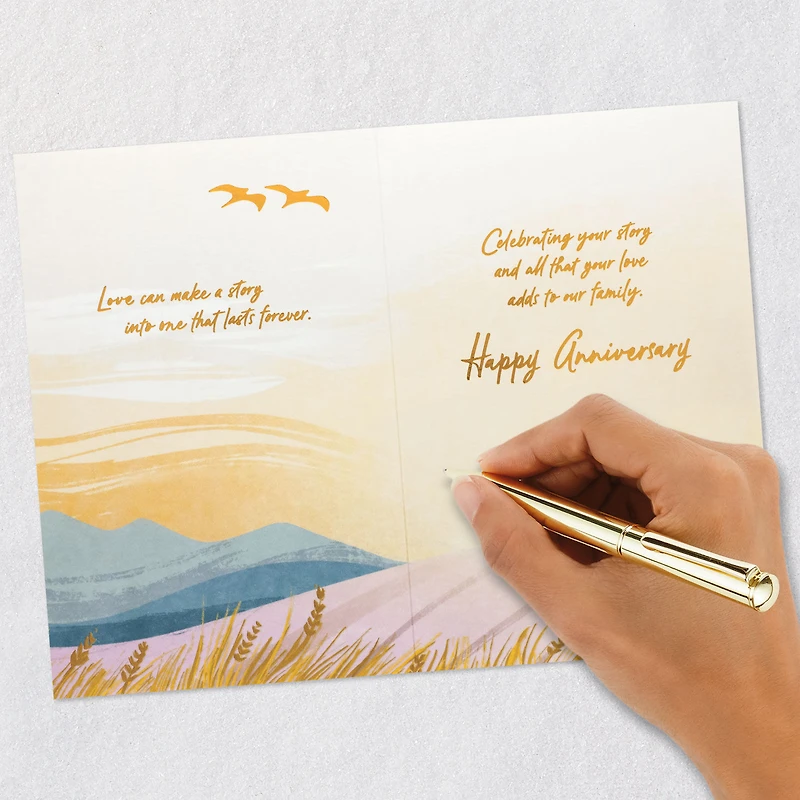 Love can make a story
into one that lasts forever.
Celebrating your story
and all that your love
adds to our family.
Happy Anniversary